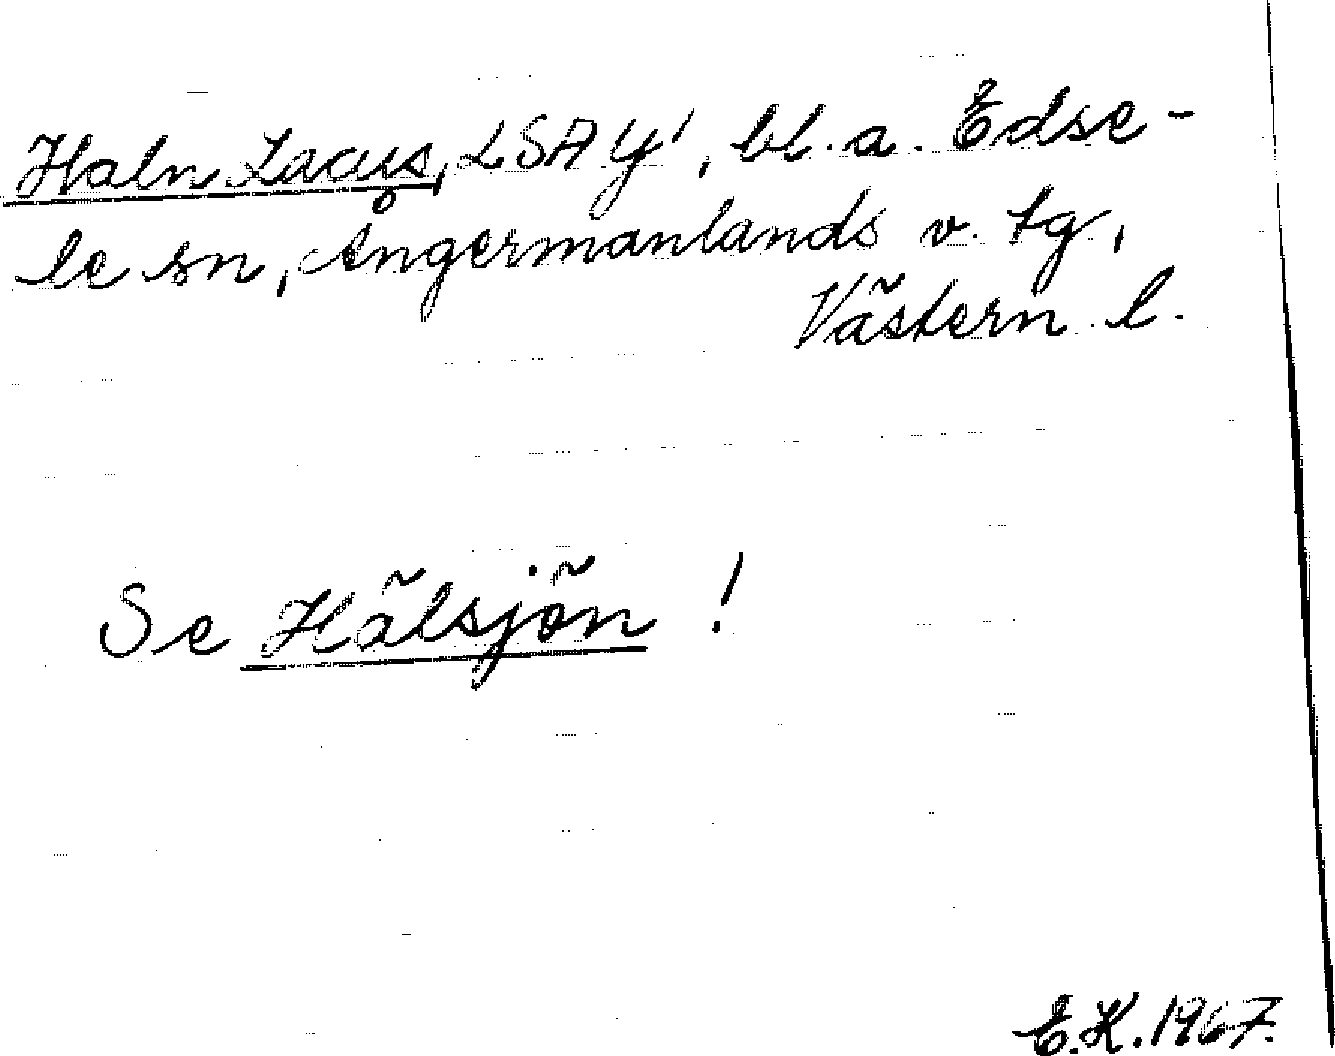 Haln Lacus, LSA Y¹, bl.a. Edse-
le sn, Ångermanlands v. tg,
Västern. l.
Se Hälsjön !
E.K. 1967.